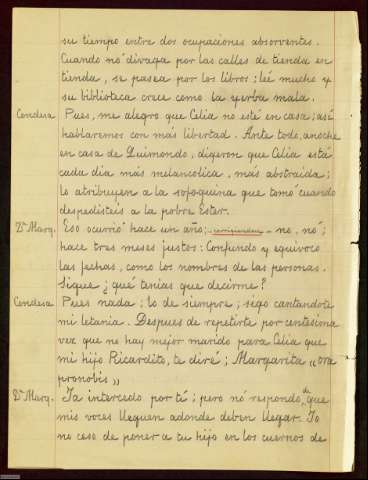 su tiempo entre dos ocupaciones absorventes.
Cuando nó divaga por las calles de tienda en
tienda, se pasea por los libros; leé mucho y
su biblioteca crece como la yerba mala.
Condesa Pues, me alegro que Celia no esté en casa; así
hablaremos con más libertad. Ante todo, anoche
en casa de Quimondo, digeron que Celia está
cada día más melancolica, más abstraida;
lo atribuyen a la sofoquina que tomó cuando
despedisteis a la pobre Ester.
Dª Marq. Eso ocurrió hace un año; no, nó;
hace tres meses justos: Confundo y equivoco
las fechas, como los nombres de las personas.
Sigue ¿qué tenias que decirme?
Condesa Pues nada; lo de siempre; sigo cantandote
mi letania. Despues de repetirte por centesima
vez que no hay mejor marido para Celia que
mi hijo Ricardito, te diré; Margarita "ora
pronobis"
Dª Marq. Ya intercedo por té; pero nó respondo, de que
mis voces lleguen adonde deben llegar. Yo
no ceso de poner a tu hijo en los cuernos de